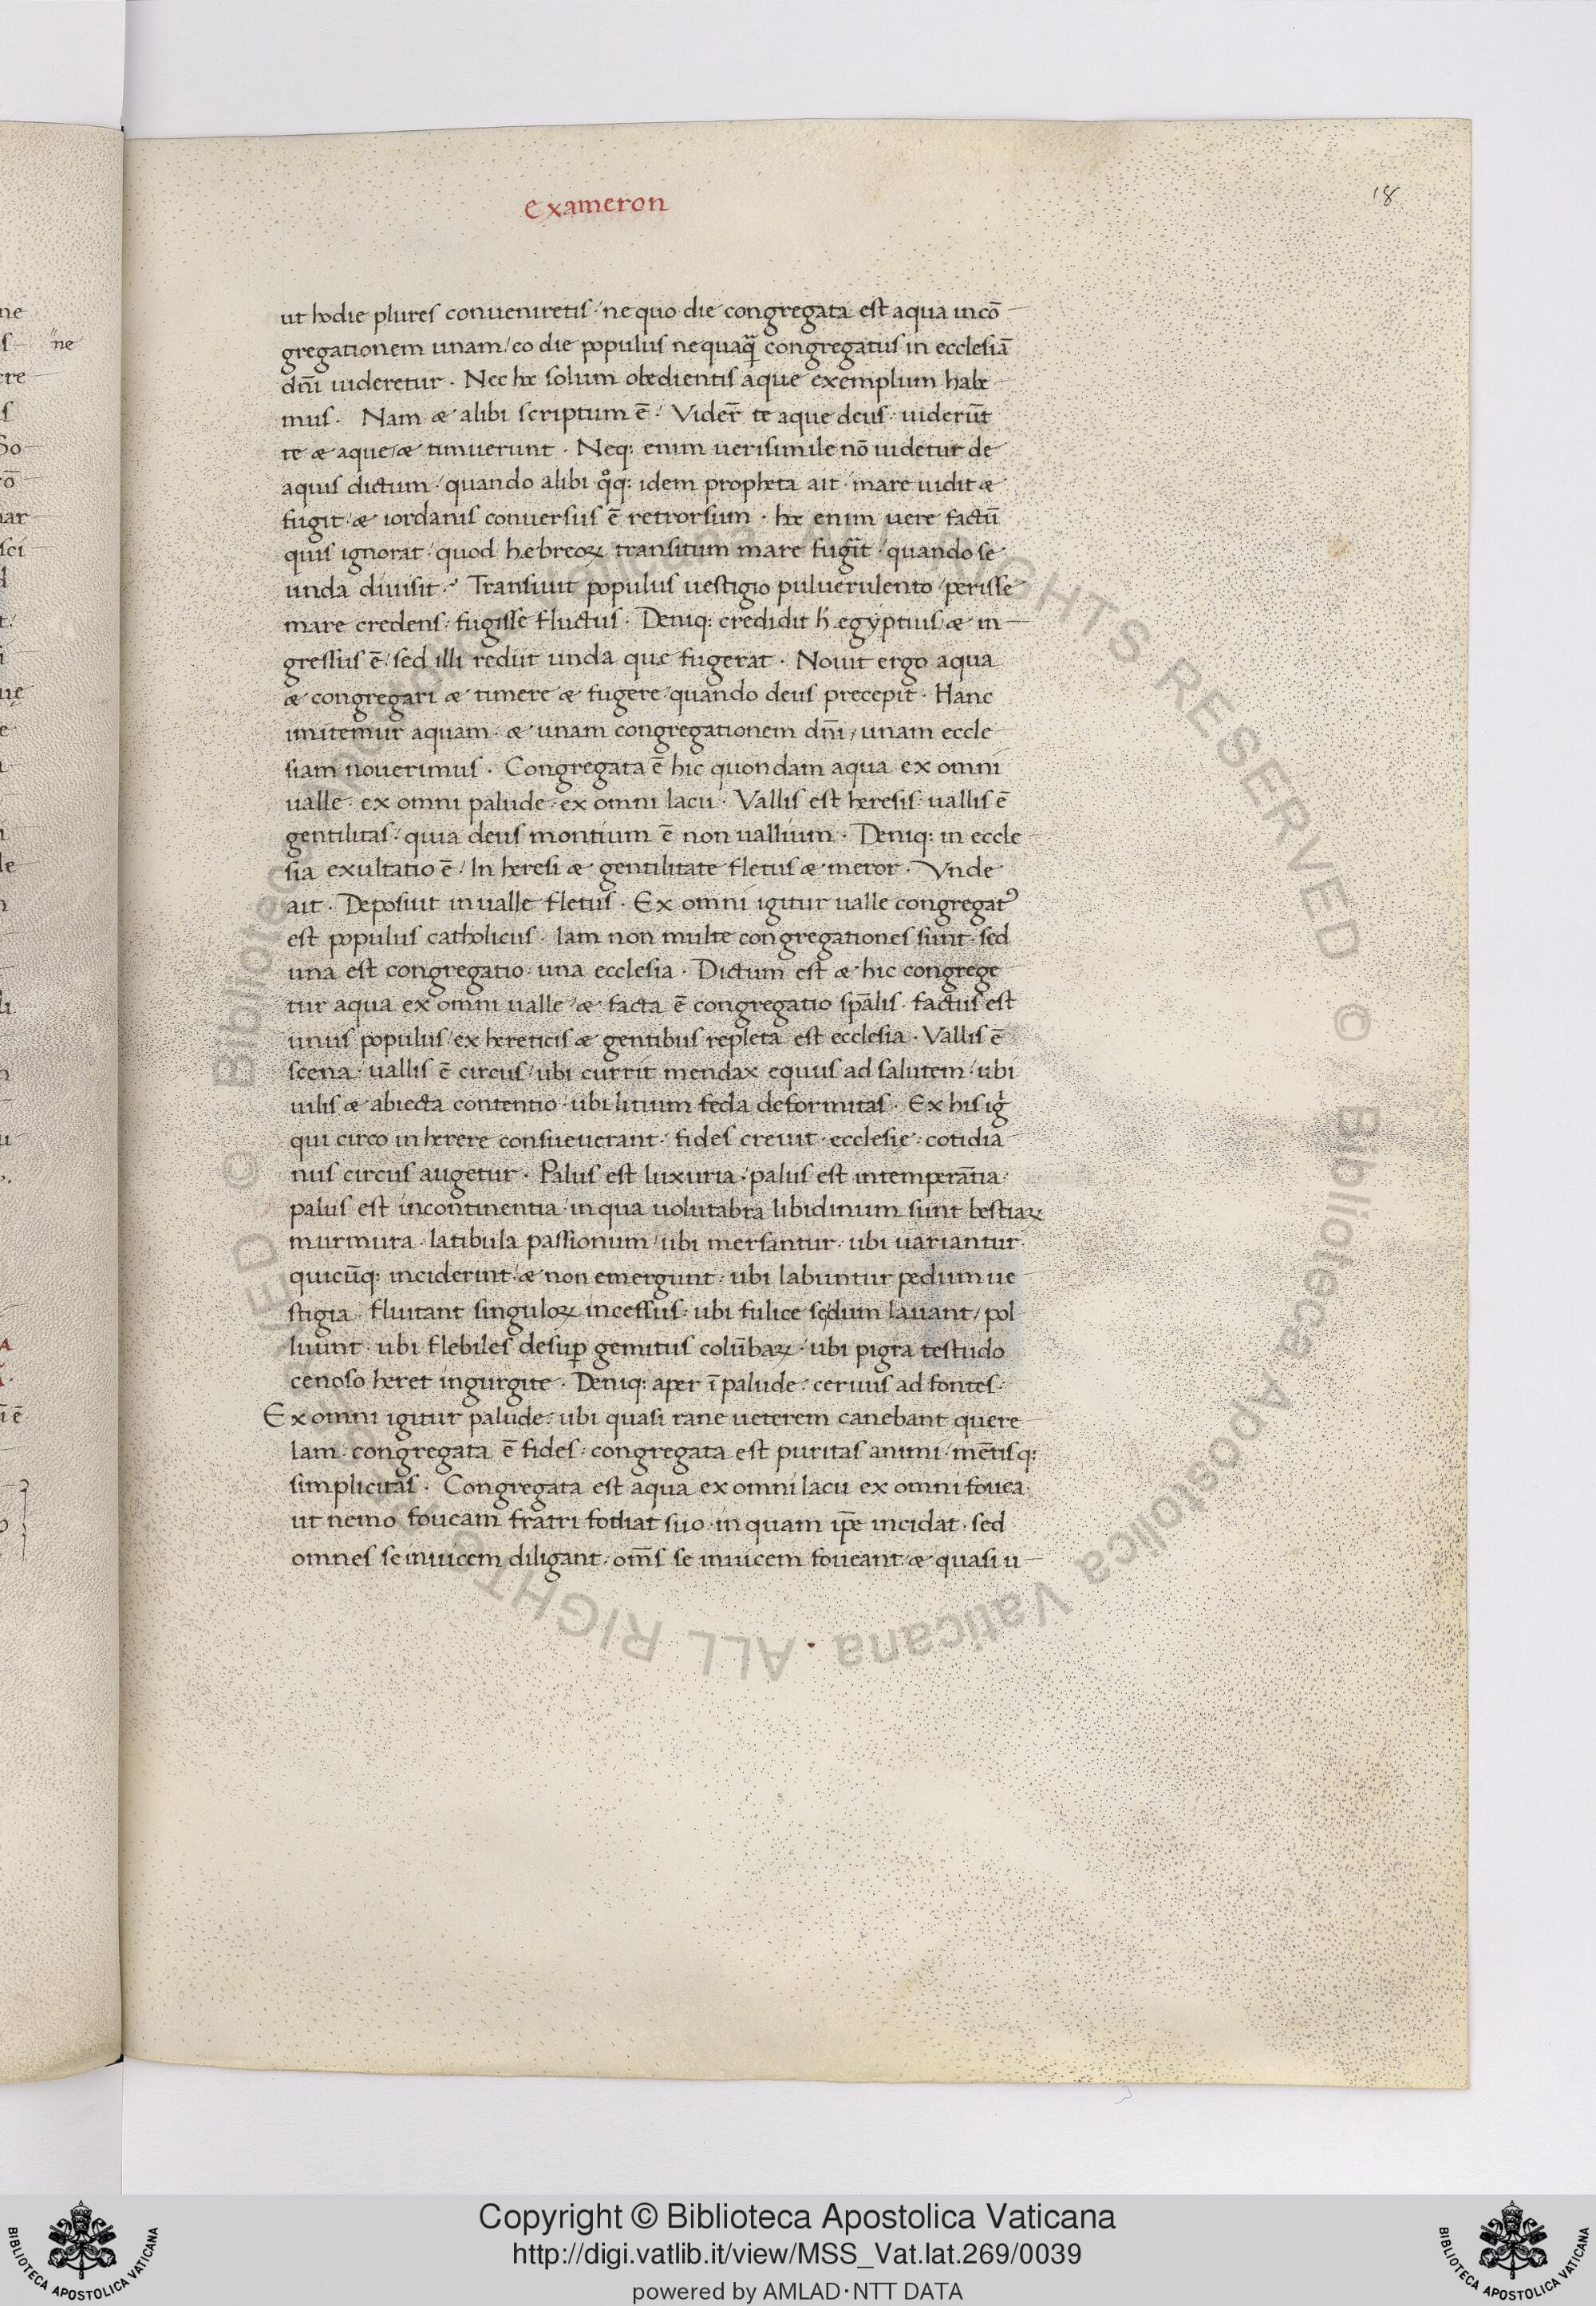 Exameron
18
ut hodie plures conueniretis · ne quo die congregata est aqua in cō
gregationem unam / eo die populus nequaq̃ congregatus in ecclesiā
dn̄i uideretur . Nec hæ solum obedientis aque exemplum habe
mus . Nam æ alibi scriptum ē . Vider̄ te aque deus . uiderūt
te æ aque / æ timuerunt . Neq: enim uerisimile nō uidetur de
aquis dictum . quando alibi qͦq: idem propheta ait . mare uidit æ
fugit . æ iordanis conuersus ē retrorsum . hæ enim uere factū
quis ignorat . quod hebreoꝝ transitum mare fugit̄ . quando se
unda diuisit . Transiuit populus uestigio puluerulento / perisse
mare credens . fugisse fluctus . Deniq: credidit h̄ egyptius / æ in
gressus ē . sed illi rediit unda que fugerat . Nouit ergo aqua
æ congregari æ timere æ fugere . quando deus precepit . Hanc
imitemur aquam . æ unam congregationem dn̄i / unam eccle
siam nouerimus . Congregata ē hic quondam aqua ex omni
ualle . ex omni palude . ex omni lacu . Vallis est heresis . uallis ē
gentilitas . quia deus montium ē non uallium . Deniq: in eccle
sia exultatio ē . In heresi æ gentilitate fletus æ meror . Vnde
ait . Deposuit in ualle fletus . Ex omni igitur ualle congregatꝰ
est populus catholicus . Iam non multe congregationes sunt . sed
una est congregatio . una ecclesia . Dictum est æ hic congrege
tur aqua ex omni ualle / æ facta ē congregatio sp̄alis . factus est
unus populus / ex hereticis æ gentibus repleta est ecclesia . Vallis ē
scena . uallis ē circus / ubi currit mendax equus ad salutem . ubi
uilis æ abiecta contentio . ubi litium feda deformitas . Ex his ig̃
qui circo inherere consueuerant . fides creuit . ecclesię . cotidia
nus circus augetur . Palus est luxuria . palus est intemperātia .
palus est incontinentia . in qua uolutabra libidinum sunt bestiaꝝ
murmura . latibula passionum / ubi mersantur . ubi uariantur .
quicūq: inciderint . æ non emergunt . ubi labuntur pedum ue
stigia . fluitant singuloꝝ incessus . ubi fulice se dum lauant / pol
luunt . ubi flebiles desuꝑ gemitus colūbaꝝ . ubi pigra testudo
cenoso heret ingurgite . Deniq: aper ī palude . ceruus ad fontes .
Ex omni igitur palude . ubi quasi rane ueterem canebant quere
lam . congregata ē fides . congregata est puritas animi . mētisq:
simplicitas . Congregata est aqua ex omni lacu ex omni fouea .
ut nemo foueam fratri fodiat suo . in quam ip̄e incidat . sed
omnes se inuicem diligant . om̄s se inuicem foueant . æ quasi u
Copyright © Biblioteca Apostolica Vaticana
http://digi.vatlib.it/view/MSS_Vat.lat.269/0039
powered by AMLAD·NTT DATA